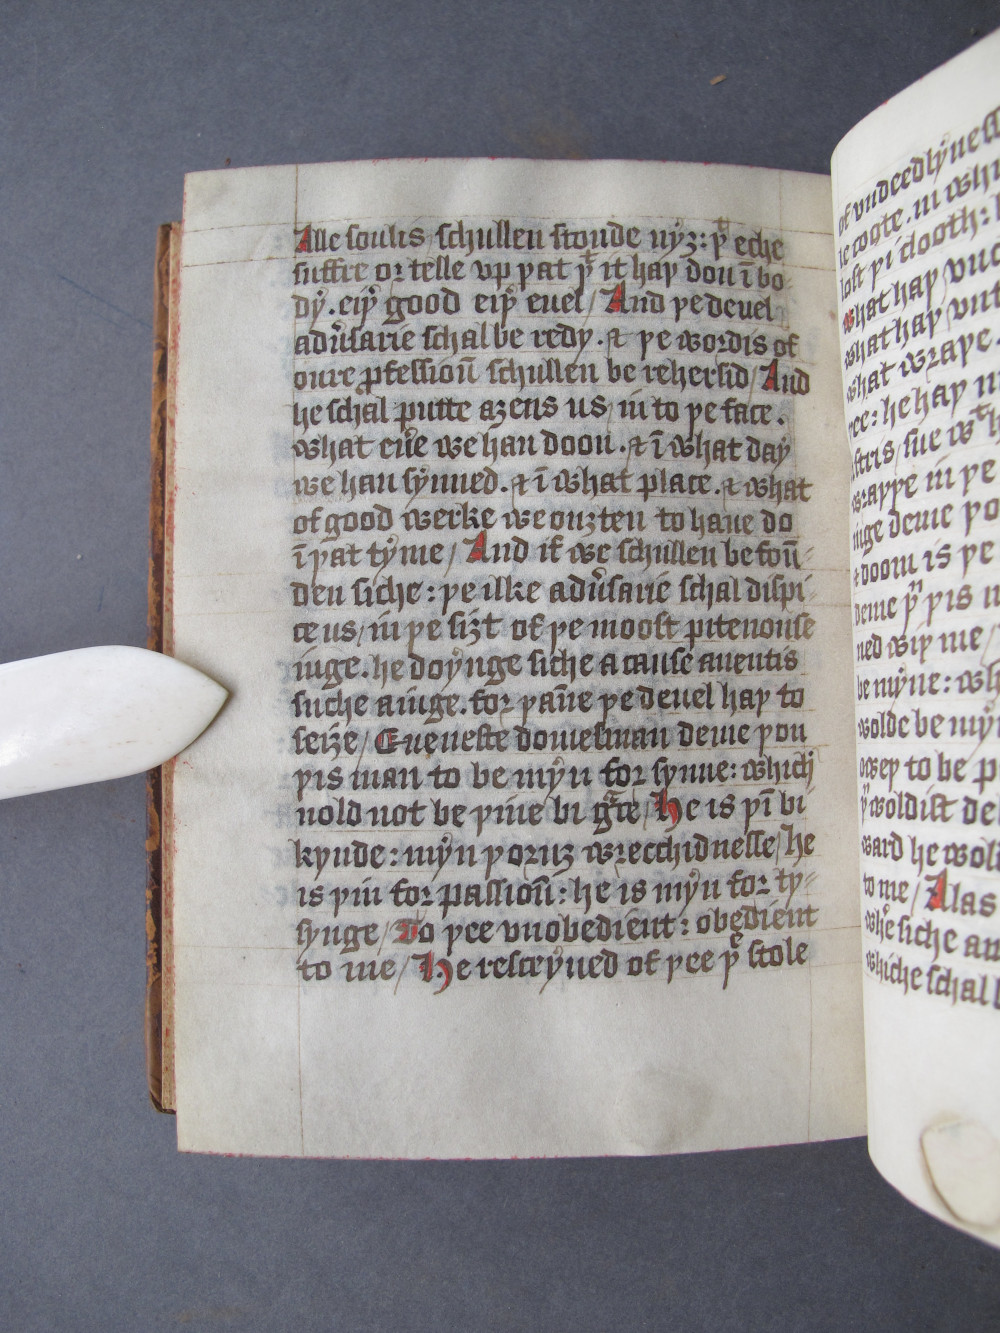 Alle soulis / schullen stonde nyȝ: þᵗ eche
suffre or telle vp þat þᵗ it haþ don ī bo-
dy. eiþ̉ good eiþ̉ euel / And þe deuel
adu̓sarie schal be redy. ⁊ þe wordis of
oure ꝓfessioū schullen be rehersid / And
he schal putte aȝens us / in to þe face.
what eu̓e we han doon. ⁊ ī what day
we han synned. ⁊ ī what place. ⁊ what
of good werke we ouȝten to haue do
ī þat tyme / And if we schullen be foū-
den siche: þe ilke adu̓sarie schal dispi-
ce us / in þe siȝt of þe moost pitenouse
iuge. he doynge siche a cause auentis
suche a iuge. for þāne þe deuel haþ to
seiȝe / Eueneste domesman deme þou
þis man to be myn for synne: which
nold not be þine bi gᵃce / he is þī bi
kynde: myn þoruȝ wrecchidnesse / he
is þin for passioū: he is myn for ty-
synge / To þee vnobedient: obedient
to me / He resceyued of þee þᵉ stole
of vndeedlyness
le cogte. in whi
lost þi clooth:
what haþ vnc
what haþ vnt
what wraþe.
ree: he haþ
ftris / sue wᵗ
wraþþe in þe
iuge deme þo
⁊ doom is þe
deme þᵘ þis
ned wiþ me /
be myne: wh
wolde be myn
oweþ to be p
þᵘ woldist de
ward he wol
to me / Alas
who siche an
whiche schal